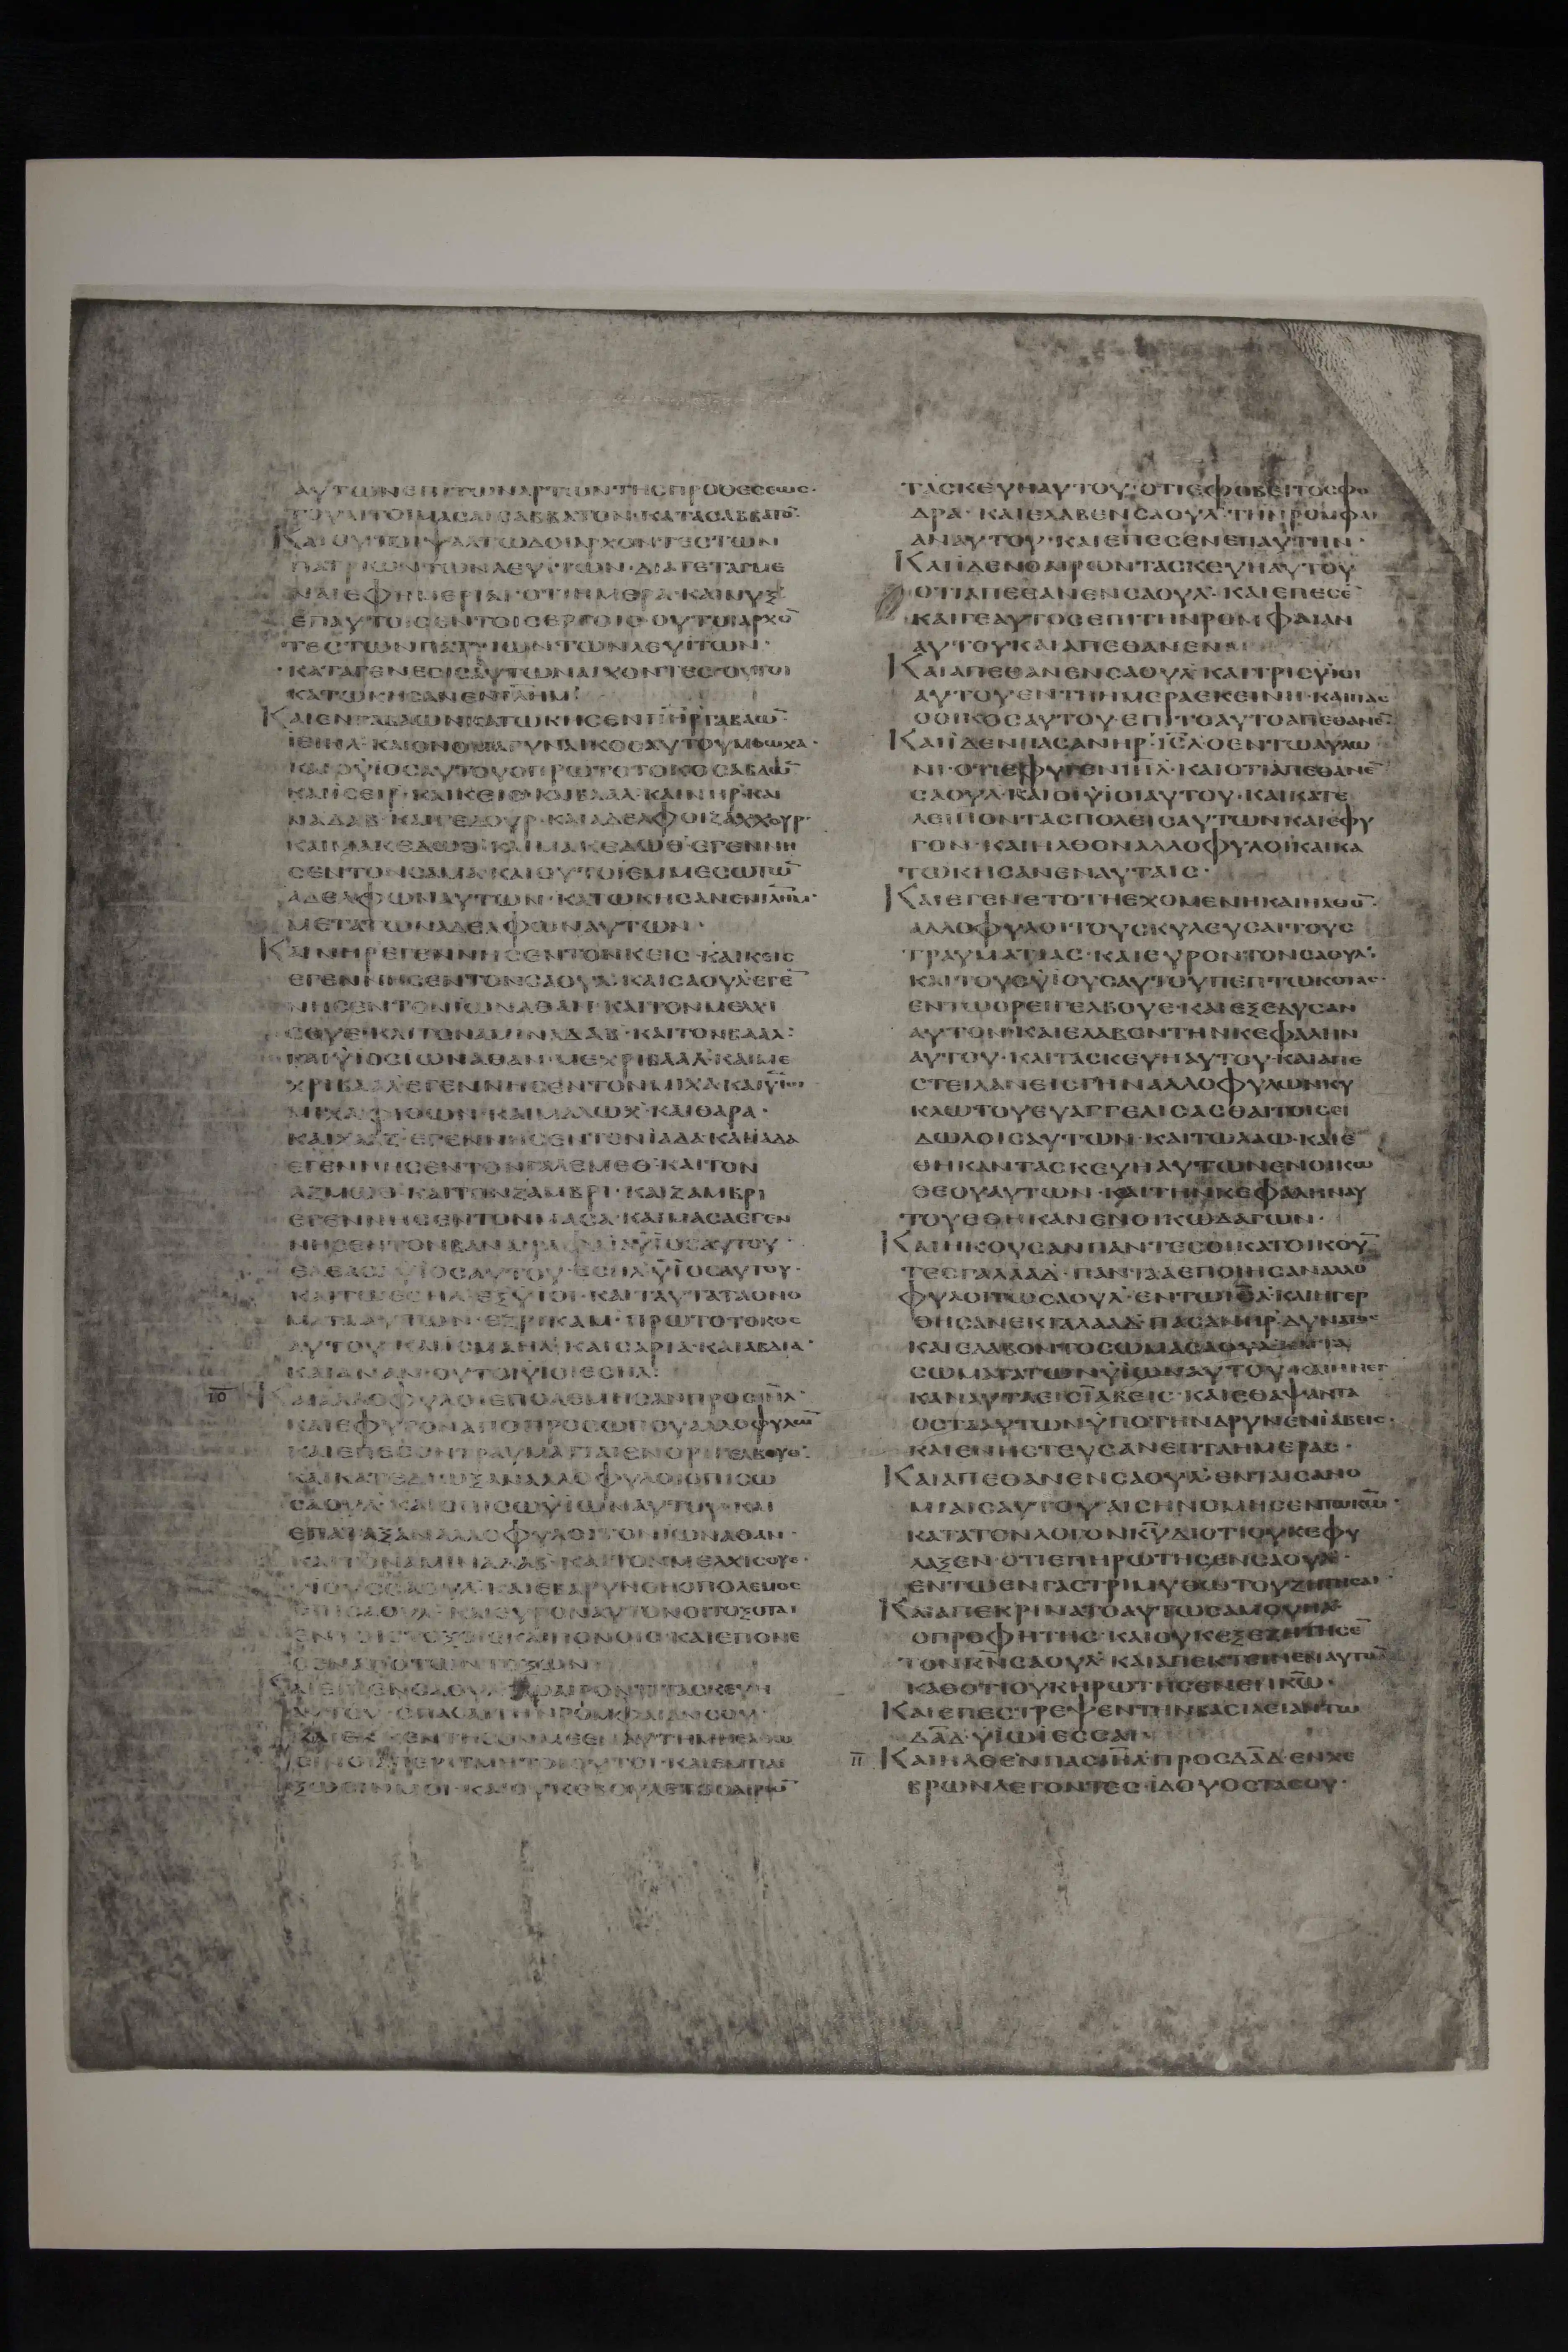 ΑΥΤΩΝΕΠΙΤΩΝΑΡΤΩΝΤΗCΠΡΟΘΕCΕΩC·
ΤΟΥΑΙΤΟΙΜΑCΑΙCΑΒΒΑΤΟΝ·ΚΑΤΑCΑΒΒΑΤΟ̅
ΚΑΙΟΥΤΟΙΨΑΛΤΩΔΟΙΑΡΧΟΝΤΕCΤΩΝ
ΠΑΤΡΙΩΝΤΩΝΛΕΥΙΤΩΝ·ΔΙΑΤΕΤΑΓΜΕ
ΝΑΙΕΦΗΜΕΡΙΑΙ·ΟΤΙΗΜΕΡΑ·ΚΑΙΝΥΞ
ΕΠΑΥΤΟΙCΕΝΤΟΙCΕΡΓΟΙC·ΟΥΤΟΙΑΡΧΟ̅
ΤΕCΤΩΝΠΑΤΡΙΩΝΤΩΝΛΕΥΙΤΩΝ·
ΚΑΤΑΓΕΝΕCΙCΑΥΤΩΝΑΡΧΟΝΤΕC·ΟΥΤΟΙ
ΚΑΤΩΚΗCΑΝΕΝΙ̅Λ̅Η̅Μ̅:
ΚΑΙΕΝΓΑΒΑΩΝΚΑΤΩΚΗCΕΝΠΗ̅Ρ̅ΓΑΒΑΩ̅
ΪΕΙΗΛ·ΚΑΙΟΝΟΜΑΓΥΝΑΙΚΟCΑΥΤΟΥΜΟΩΧΑ·
ΚΑΙΟΫΙΟCΑΥΤΟΥΟΠΡΩΤΟΤΟΚΟCΑΒΔΩ̅
ΚΑΙΪCΕΙΡ·ΚΑΙΚΕΙC·ΚΑΙΒΑΑΛ·ΚΑΙΝΗΡ·ΚΑΙ
ΝΑΔΑΒ·ΚΑΙΓΕΔΟΥΡ·ΚΑΙΑΔΕΛΦΟΙΖΑΧΧΟΥΡ·
ΚΑΙΜΑΚΕΔΩΘ·ΚΑΙΜΑΚΕΔΩΘ·ΕΓΕΝΝΗ
CΕΝΤΟΝCΑΜΑ·ΚΑΙΟΥΤΟΙΕΜΜΕCΩΤΩ̅
ΑΔΕΛΦΩΝΑΥΤΩΝ·ΚΑΤΩΚΗCΑΝΕΝΙ̅Λ̅Η̅Μ̅·
ΜΕΤΑΤΩΝΑΔΕΛΦΩΝΑΥΤΩΝ·
ΚΑΙΝΗΡΕΓΕΝΝΗCΕΝΤΟΝΚΕΙC·ΚΑΙΚΕΙC
ΕΓΕΝΝΗCΕΝΤΟΝCΑΟΥΛ·ΚΑΙCΑΟΥΛΕΓΕ̅
ΝΗCΕΝΤΟΝΪΩΝΑΘΑΝ·ΚΑΙΤΟΝΜΕΛΧΙ
CΟΥΕ·ΚΑΙΤΟΝΑΜΙΝΑΔΑΒ·ΚΑΙΤΟΝΒΑΑΛ:
ΚΑΙΫΙΟCΙΩΝΑΘΑΝ·ΜΕΧΡΙΒΑΑΛ·ΚΑΙΜΕ
ΧΡΙΒΑΑΛΕΓΕΝΝΗCΕΝΤΟΝΜΙΧΑ·ΚΑΙΫΙΟΙ
ΜΙΧΑ·ΦΙΘΩΝ·ΚΑΙΜΑΛΩΧ·ΚΑΙΘΑΡΑ·
ΚΑΙΧΑΑΖ·ΕΓΕΝΝΗCΕΝΤΟΝΪΑΔΑ·ΚΑΙΪΑΔΑ
ΕΓΕΝΝΗCΕΝΤΟΝΓΑΛΕΜΕΘ·ΚΑΙΤΟΝ
ΑΖΜΩΘ·ΚΑΙΤΟΝΖΑΜΒΡΙ·ΚΑΙΖΑΜΒΡΙ
ΕΓΕΝΝΗCΕΝΤΟΝΜΑCΑ·ΚΑΙΜΑCΑΕΓΕΝ
ΕΛΕΑCΑΫΙΟCΑΥΤΟΥ·ΕCΗΛΫΙΟCΑΥΤΟΥ·
ΚΑΙΤΩΕCΗΛ·ΕΞΥΙΟΙ·ΚΑΙΤΑΥΤΑΤΑΟΝΟ
ΜΑΤΑΑΥΤΩΝ·ΕΖΡΙΚΑΜ·ΠΡΩΤΟΤΟΚΟC
ΑΥΤΟΥ·ΚΑΙΪCΜΑΗΛ·ΚΑΙCΑΡΙΑ·ΚΑΙΑΒΔΙΑ·
ΚΑΙΑΝΑΝ·ΟΥΤΟΙΫΙΟΙΕCΗΛ:
Ι̅Θ̅ ΚΑΙΑΛΛΟΦΥΛΟΙΕΠΟΛΕΜΗCΑΝΠΡΟCΙ̅Η̅Λ̅·
ΚΑΙΕΦΥΓΟΝΑΠΟΠΡΟCΩΠΟΥΑΛΛΟΦΥΛΩ̅
ΚΑΙΕΠΕCΟΝΤΡΑΥΜΑΤΙΑΙΕΝΟΡΙΓΕΛΒΟΥΕ·
ΚΑΙΚΑΤΕΔΙΩΞΑΝΑΛΛΟΦΥΛΟΙΟΠΙCΩ
CΑΟΥΛ·ΚΑΙΟΠΙCΩΫΙΩΝΑΥΤΟΥ·ΚΑΙ
ΕΠΑΤΑΞΑΝΑΛΛΟΦΥΛΟΙΤΟΝΪΩΝΑΘΑΝ·
ΚΑΙΤΟΝΑΜΙΝΑΔΑΒ·ΚΑΙΤΟΝΜΕΛΧΙCΟΥΕ·
ΫΙΟΥCCΑΟΥΛ·ΚΑΙΕΒΑΡΥΝΘΗΟΠΟΛΕΜΟC
ΕΠΙCΑΟΥΛ·ΚΑΙΕΥΡΟΝΑΥΤΟΝΟΙΤΟΞΟΤΑΙ
ΕΝΤΟΙCΤΟΞΟΙC·ΚΑΙΠΟΝΟΙC·ΚΑΙΕΠΟΝΕ
CΕΝΑΠΟΤΩΝΤΟΞΩΝ·
ΚΑΙΕΙΠΕΝCΑΟΥΛΤΩΑΙΡΟΝΤΙΤΑCΚΕΥΗ
ΑΥΤΟΥ·CΠΑCΑΙΤΗΝΡΟΜΦΑΙΑΝCΟΥ·
ΞΩCΙΝΜΟΙ·ΚΑΙΟΥΚΕΒΟΥΛΕΤΟΟΑΙΡΩ̅
ΤΑCΚΕΥΗΑΥΤΟΥ·ΟΤΙΕΦΟΒΕΙΤΟCΦΟ
ΔΡΑ·ΚΑΙΕΛΑΒΕΝCΑΟΥΛ·ΤΗΝΡΟΜΦΑΙ
ΑΝΑΥΤΟΥ·ΚΑΙΕΠΕCΕΝΕΠΑΥΤΗΝ·
ΚΑΙΪΔΕΝΟΑΙΡΩΝΤΑCΚΕΥΗΑΥΤΟΥ
ΟΤΙΑΠΕΘΑΝΕΝCΑΟΥΛ·ΚΑΙΕΠΕCΕ̅
ΚΑΙΓΕΑΥΤΟCΕΠΙΤΗΝΡΟΜΦΑΙΑΝ
ΑΥΤΟΥΚΑΙΑΠΕΘΑΝΕΝ·
ΚΑΙΑΠΕΘΑΝΕΝCΑΟΥΛ·ΚΑΙΤΡΙCΫΙΟΙ
ΑΥΤΟΥΕΝΤΗΗΜΕΡΑΕΚΕΙΝΗ·ΚΑΙΠΑC
ΟΟΙΚΟCΑΥΤΟΥ·ΕΠΙΤΟΑΥΤΟΑΠΕΘΑΝΕ̅·
ΚΑΙΪΔΕΝΠΑCΑΝΗΡ·Ι̅C̅Λ̅ΟΕΝΤΩΑΥΛΩ
ΝΙ·ΟΤΙΕΦΥΓΕΝΙ̅Η̅Λ̅·ΚΑΙΟΤΙΑΠΕΘΑΝΕ̅
CΑΟΥΛ·ΚΑΙΟΙΫΙΟΙΑΥΤΟΥ·ΚΑΙΚΑΤΕ
ΛΕΙΠΟΝΤΑCΠΟΛΕΙCΑΥΤΩΝΚΑΙΕΦΥ
ΓΟΝ·ΚΑΙΗΛΘΟΝΑΛΛΟΦΥΛΟΙΚΑΙΚΑ
ΤΩΚΗCΑΝΕΝΑΥΤΑΙC·
ΚΑΙΕΓΕΝΕΤΟΤΗΕΧΟΜΕΝΗΚΑΙΗΛΘΟ̅·
ΑΛΛΟΦΥΛΟΙΤΟΥCΚΥΛΕΥCΑΙΤΟΥC
ΤΡΑΥΜΑΤΙΑC·ΚΑΙΕΥΡΟΝΤΟΝCΑΟΥΛ·
ΚΑΙΤΟΥCΫΙΟΥCΑΥΤΟΥΠΕΠΤΩΚΟΤΑC·
ΕΝΤΩΟΡΕΙΓΕΛΒΟΥΕ·ΚΑΙΕΞΕΔΥCΑΝ
ΑΥΤΟΝ·ΚΑΙΕΛΑΒΟΝΤΗΝΚΕΦΑΛΗΝ
ΑΥΤΟΥ·ΚΑΙΤΑCΚΕΥΗΑΥΤΟΥ·ΚΑΙΑΠΕ
CΤΕΙΛΑΝΕΙCΓΗΝΑΛΛΟΦΥΛΩΝΚΥ
ΚΛΩΤΟΥΕΥΑΓΓΕΛΙCΑCΘΑΙΤΟΙCΕΙ
ΔΩΛΟΙCΑΥΤΩΝ·ΚΑΙΤΩΛΑΩ·ΚΑΙΕ
ΘΗΚΑΝΤΑCΚΕΥΗΑΥΤΩΝΕΝΟΙΚΩ
ΘΕΟΥΑΥΤΩΝ·ΚΑΙΤΗΝΚΕΦΑΛΗΝΑΥ
ΤΟΥΕΘΗΚΑΝΕΝΟΙΚΩΔΑΓΩΝ·
ΚΑΙΗΚΟΥCΑΝΠΑΝΤΕCΟΙΚΑΤΟΙΚΟΥ̅
ΤΕCΓΑΛΑΑΔ·ΠΑΝΤΑΑΕΠΟΙΗCΑΝΑΛΛΟ
ΦΥΛΟΙΤΩCΑΟΥΛ·ΕΝΤΩΙ̅Η̅Λ̅·ΚΑΙΗΓΕΡ
ΘΗCΑΝΕΚΓΑΛΑΑΔ·ΠΑCΑΝΗΡ·ΔΥΝΑΤΟC
ΚΑΙΕΛΑΒΟΝΤΟCΩΜΑCΑΟΥΛ·ΚΑΙΤΑ
CΩΜΑΤΑΤΩΝΫΙΩΝΑΥΤΟΥ·ΚΑΙΗΝΕΓ
ΚΑΝΑΥΤΑΕΙCΪΑΒΕΙC·ΚΑΙΕΘΑΨΑΝΤΑ
ΟCΤΑΑΥΤΩΝΫΠΟΤΗΝΔΡΥΝΕΝΪΑΒΕΙC·
ΚΑΙΕΝΗCΤΕΥCΑΝΕΠΤΑΗΜΕΡΑC·
ΚΑΙΑΠΕΘΑΝΕΝCΑΟΥΛ·ΕΝΤΑΙCΑΝΟ
ΜΙΑΙCΑΥΤΟΥ·ΑΙCΗΝΟΜΗCΕΝΤΩΚ̅Ω̅·
ΚΑΤΑΤΟΝΛΟΓΟΝΚ̅Υ̅ΔΙΟΤΙΟΥΚΕΦΥ
ΛΑΞΕΝ·ΟΤΙΕΠΗΡΩΤΗCΕΝCΑΟΥΛ·
ΕΝΤΩΕΝΓΑCΤΡΙΜΥΘΩΤΟΥΖΗΤΗCΑΙ·
ΚΑΙΑΠΕΚΡΙΝΑΤΟΑΥΤΩCΑΜΟΥΗΛ·
ΟΠΡΟΦΗΤΗC·ΚΑΙΟΥΚΕΞΕΖΗΤΗCΕ̅
ΤΟΝΚ̅Ν̅CΑΟΥΛ·ΚΑΙΑΠΕΚΤΕΙΝΕΝΑΥΤΟ̅
ΚΑΘΟΤΙΟΥΚΗΡΩΤΗCΕΝΕΝΚ̅Ω̅·
ΚΑΙΕΠΕCΤΡΕΨΕΝΤΗΝΒΑCΙΛΕΙΑΝΤΩ
Δ̅Α̅Δ̅·ΫΙΩΙΕCCΑΙ·
Π̅ ΚΑΙΗΛΘΕΝΠΑCΙ̅Η̅Λ̅·ΠΡΟCΔ̅Α̅Δ̅·ΕΝΧΕ
ΒΡΩΝΛΕΓΟΝΤΕC·ΙΔΟΥΟCΤΑCΟΥ·